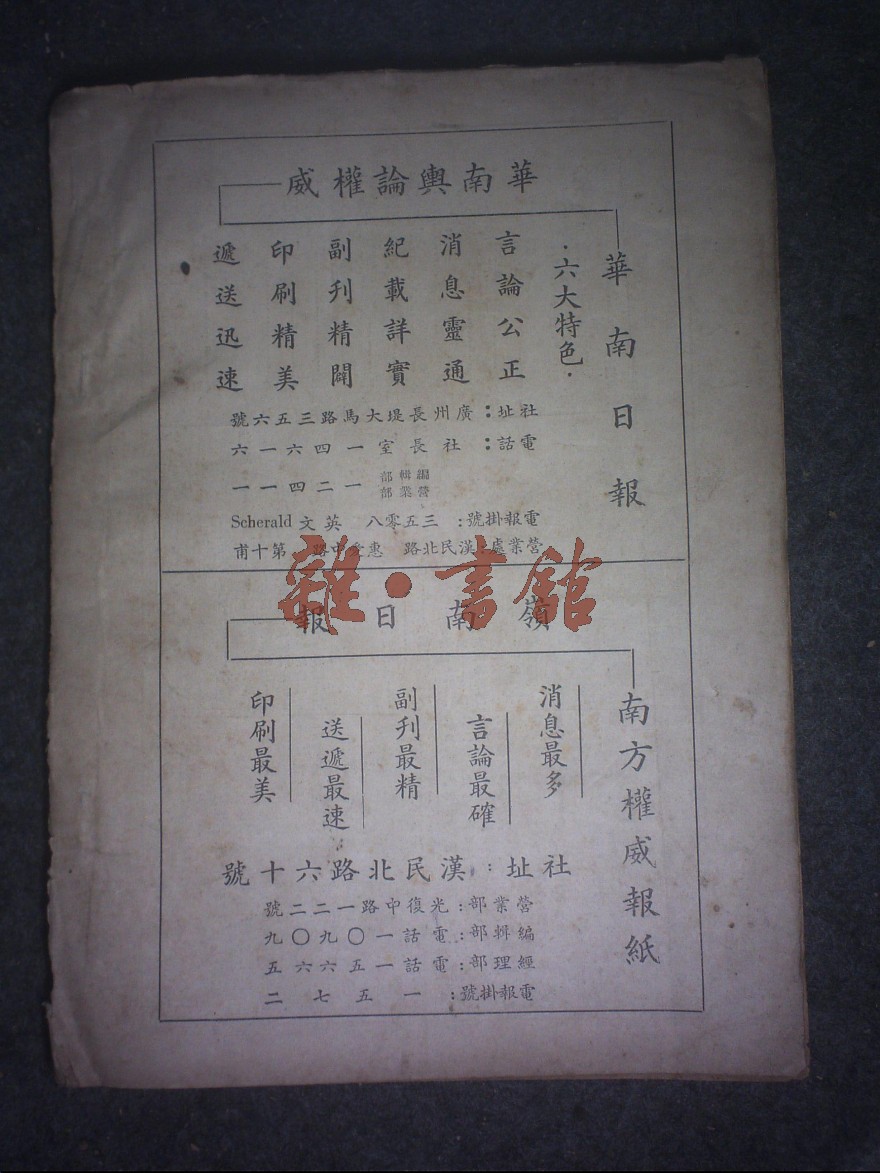 華南輿論權威
華南日報
·六大特色·
言論公正
消息靈通
紀載詳實
副刊精闢
印刷精美
遞送迅速
社址：廣州長堤大馬路三五六號
電話：社長室 一四六一六
編輯部
營業部 一二四一一
電報掛號：三五零八 英文 Scherald
營業處：漢民北路 惠愛中路 第十甫
雜·書館
嶺南日報
南方權威報紙
消息最多
言論最確
副刊最精
送遞最速
印刷最美
社址：漢民北路六十號
營業部：光復中路一二二號
編輯部：電話一〇九〇九
經理部：電話一五六六五
電報掛號：一五七二